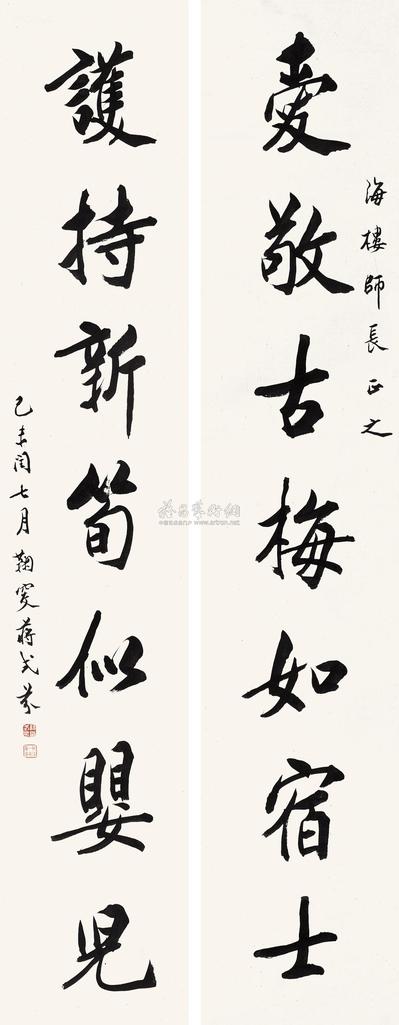 海樓師長正之
愛敬古梅如宿士
護持新筍似嬰兒
己未閏七月鞠叟蔣式芬
雅昌藝術網
www.artron.net